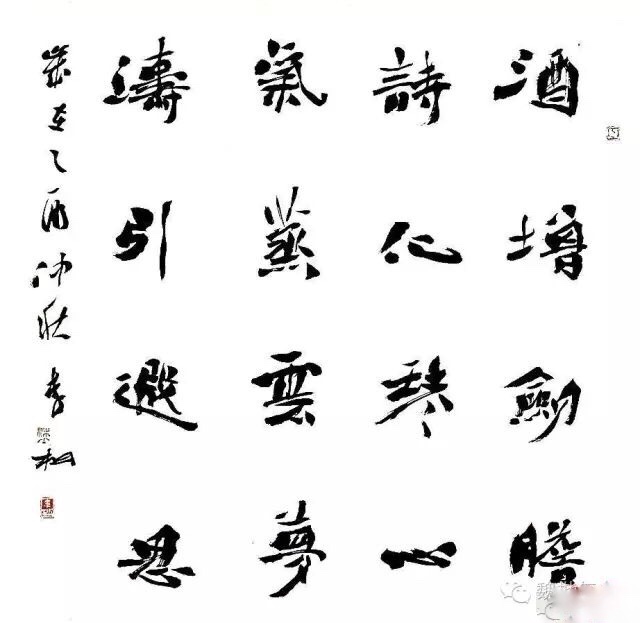 酒增劍膽
詩化琴心
氣蒸雲夢
濤引遐思
歲在乙酉仲秋李
魏